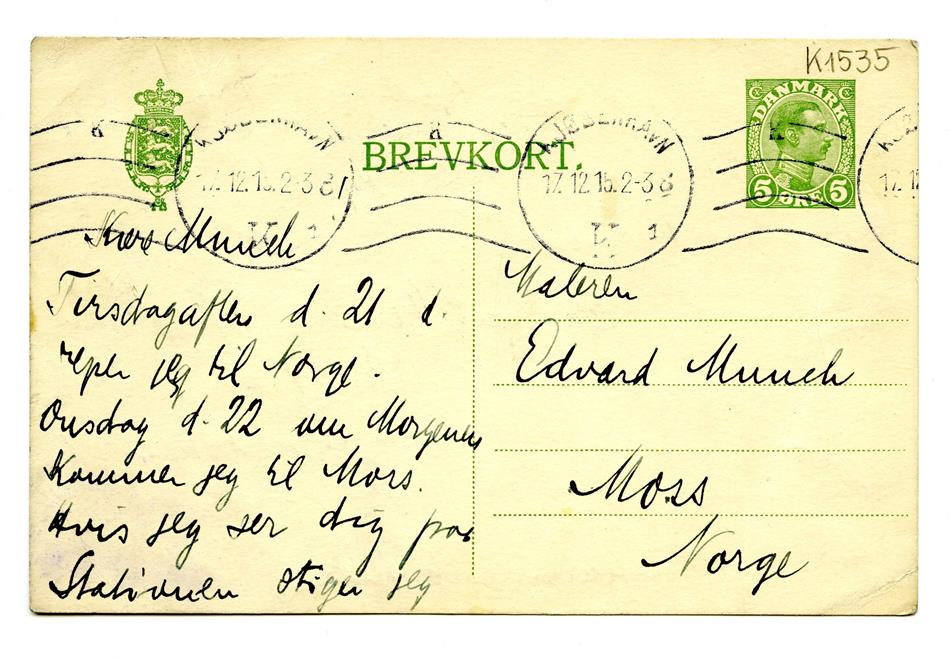 K1535
BREVKORT.
DANMARK
5 ØRE 5
KJØBENHAVN
17.12.15. 2-3 E
K 1
KJØBENHAVN
17.12.15. 2-3 E
K 1
Kære Munch
Tirsdagaften d. 21 d.
rejser jeg til Norge.
Onsdag d. 22 om Morgenen
Kommer jeg til Mors.
Hvis jeg ser dig paa
Stationen stiger jeg
Maleren
Edvard Munch
Moss
Norge